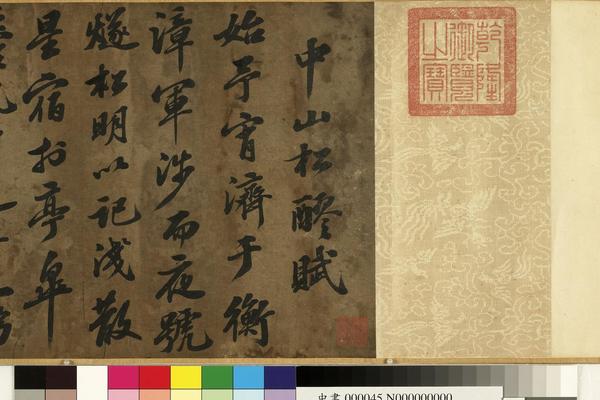 乾隆御覽之寶
中山松醪賦
始予宵濟于衡
漳軍涉而夜號
燧松明以記淺散
星宿於亭皋
000045 N000000000